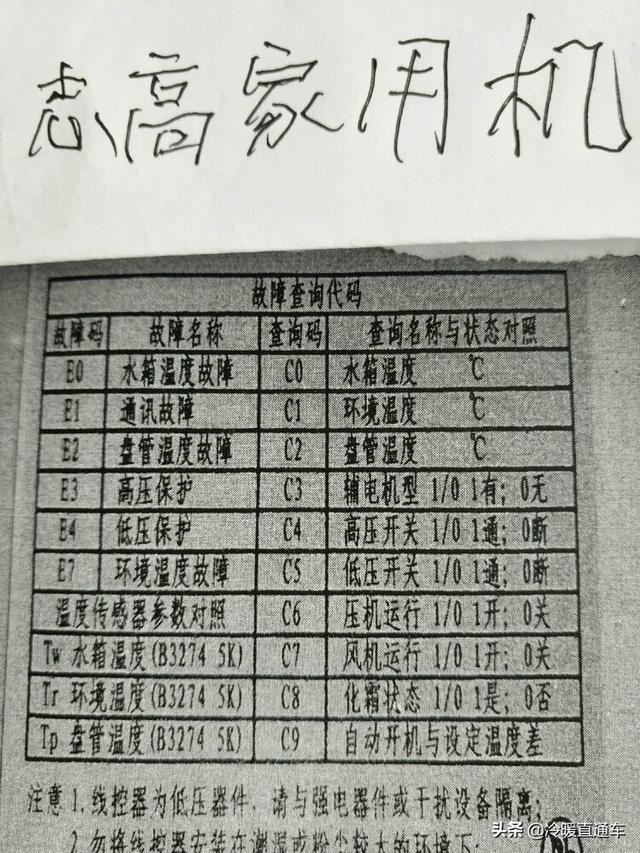 志高家用机
故障查询代码
故障码 故障名称 查询码 查询名称与状态对照
E0 水箱温度故障 C0 水箱温度 ℃
E1 通讯故障 C1 环境温度 ℃
E2 盘管温度故障 C2 盘管温度 ℃
E3 高压保护 C3 辅电机型 1/0 1有; 0无
E4 低压保护 C4 高压开关 1/0 1通; 0断
E7 环境温度故障 C5 低压开关 1/0 1通; 0断
温度传感器参数对照 C6 压机运行 1/0 1开; 0关
Tw 水箱温度(B3274 5K) C7 风机运行 1/0 1开; 0关
Tr 环境温度(B3274 5K) C8 化霜状态 1/0 1是; 0否
Tp 盘管温度(B3274 5K) C9 自动开机与设定温度差
注意 1.线控器为低压器件, 请与强电器件或干扰设备隔离;
2.勿将线控器安装在潮湿或粉尘较大的环境下;
头条 @冷暖直通车